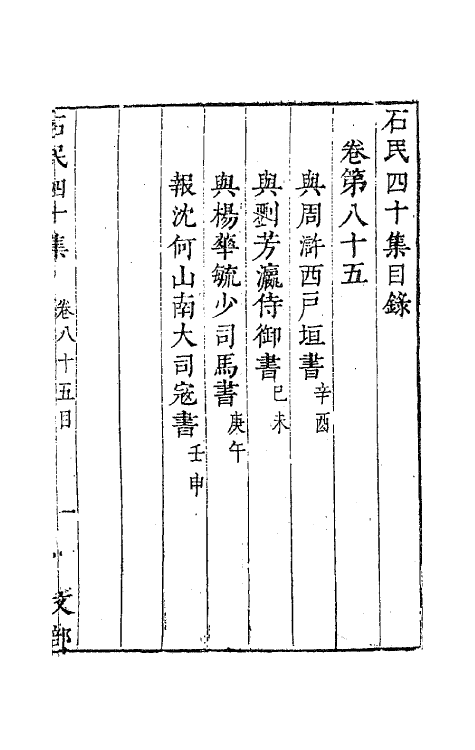 石民四十集目錄
卷第八十五
與周滸西戸垣書辛酉
與劉芳瀛侍御書己未
與楊華毓少司馬書庚午
報沈何山南大司寇書壬申
石民四十集 卷八十五目 一 文部